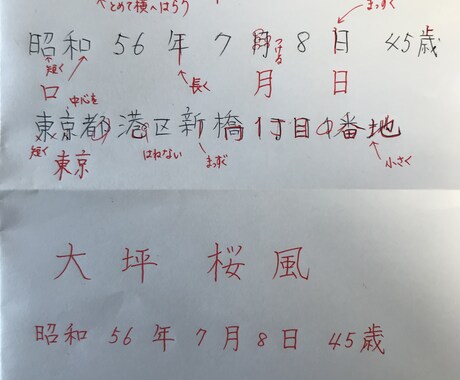 とめて横へはらう
まっすぐ
昭和 56 年 7 月 8 日 45歳
短く
長く
つける
口
中心を
月 日
東京都港区新橋1丁目4番地
短く
はねない
まっすぐ
小さく
東京
大坪 桜風
昭和 56 年 7 月 8 日 45歳